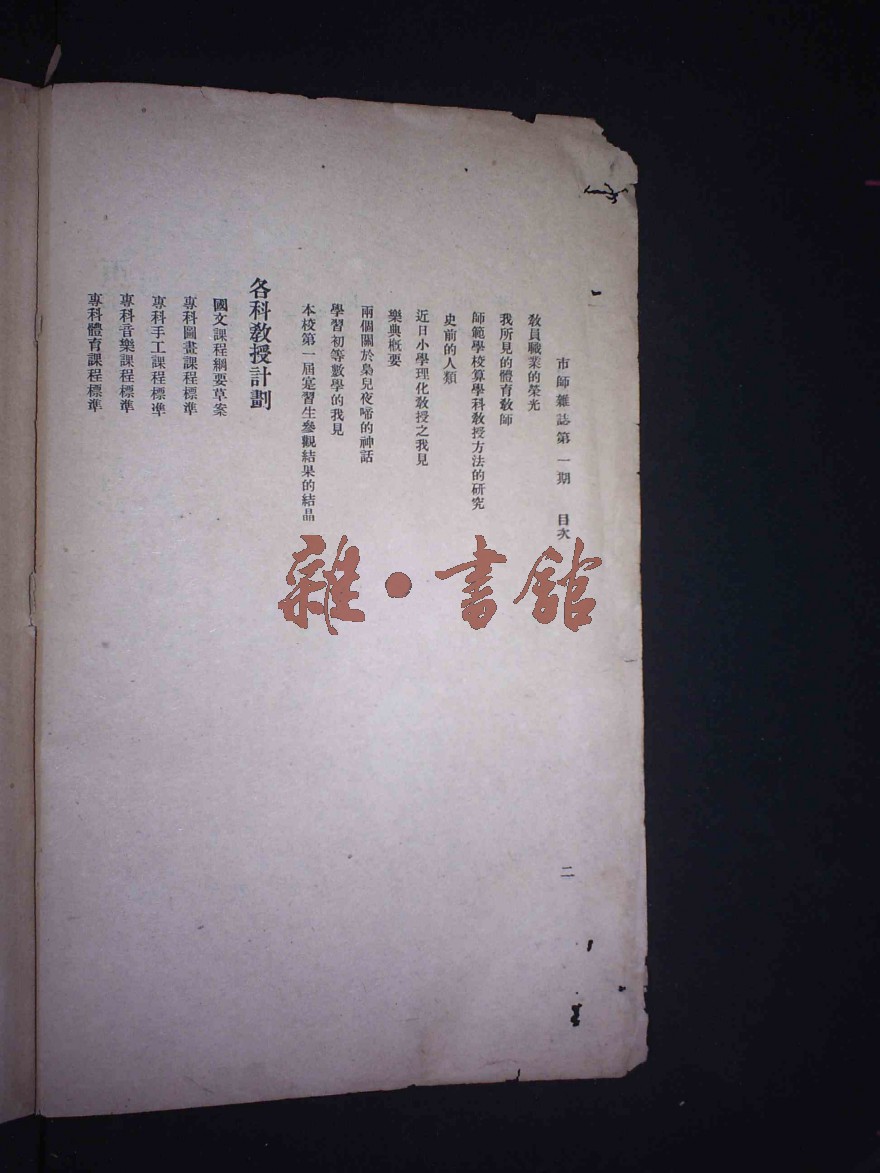 市師雜誌第一期　目次
二
教員職業的榮光
我所見的體育教師
師範學校算學科教授方法的研究
史前的人類
近日小學理化教授之我見
樂典概要
兩個關於梟兒夜啼的神話
學習初等數學的我見
本校第一屆寔習生參觀結果的結晶
各科教授計劃
國文課程綱要草案
專科圖畫課程標準
專科手工課程標準
專科音樂課程標準
專科體育課程標準
雜·書館